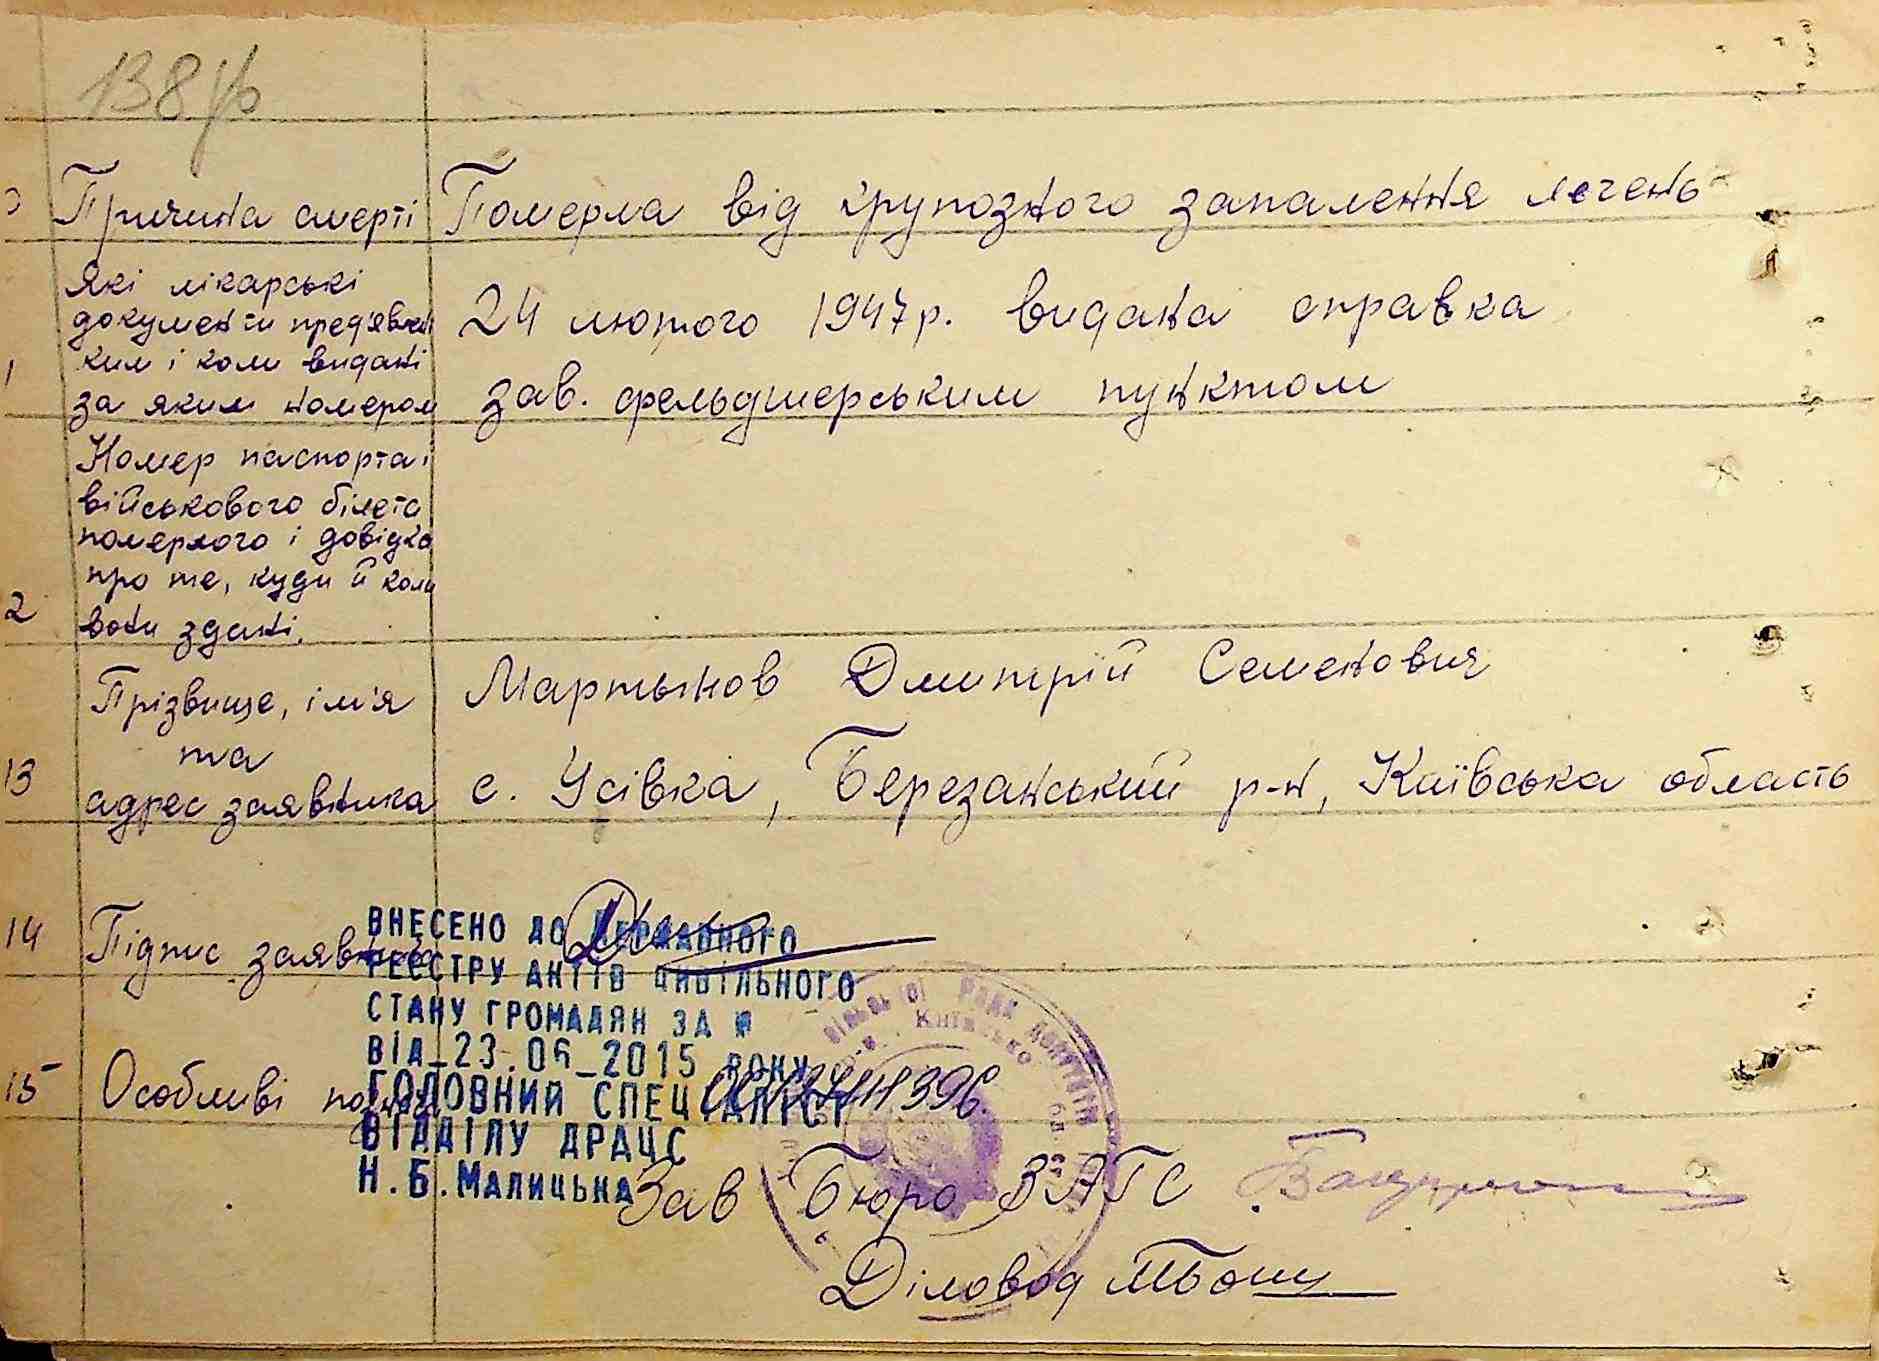 138
Причина смерті Померла від крупозного запалення легень
Які лікарські
документи пред'явлені
ким і коли видані
за яким номером
24 лютого 1947р. видана справка
зав. фельдшерським пунктом
Номер паспорта і
військового білета
померлого і довідка
про те, куди й коли
вони здані.
2
Прізвище, ім'я
та
адрес заявника
13
Мартынов Дмитрій Семенович
с. Усівка, Березанський р-н, Київська область
14 Підпис заявника
ВНЕСЕНО ДО ДЕРЖАВНОГО
РЕЄСТРУ АКТІВ ЦИВІЛЬНОГО
СТАНУ ГРОМАДЯН ЗА №
ВІД 23.06 2015 РОКУ
ГОЛОВНИЙ СПЕЦІАЛІСТ
ВІДДІЛУ ДРАЦС
Н.Б.МАЛИЦЬКА
15 Особливі
Зав Бюро ЗАГС
Діловод